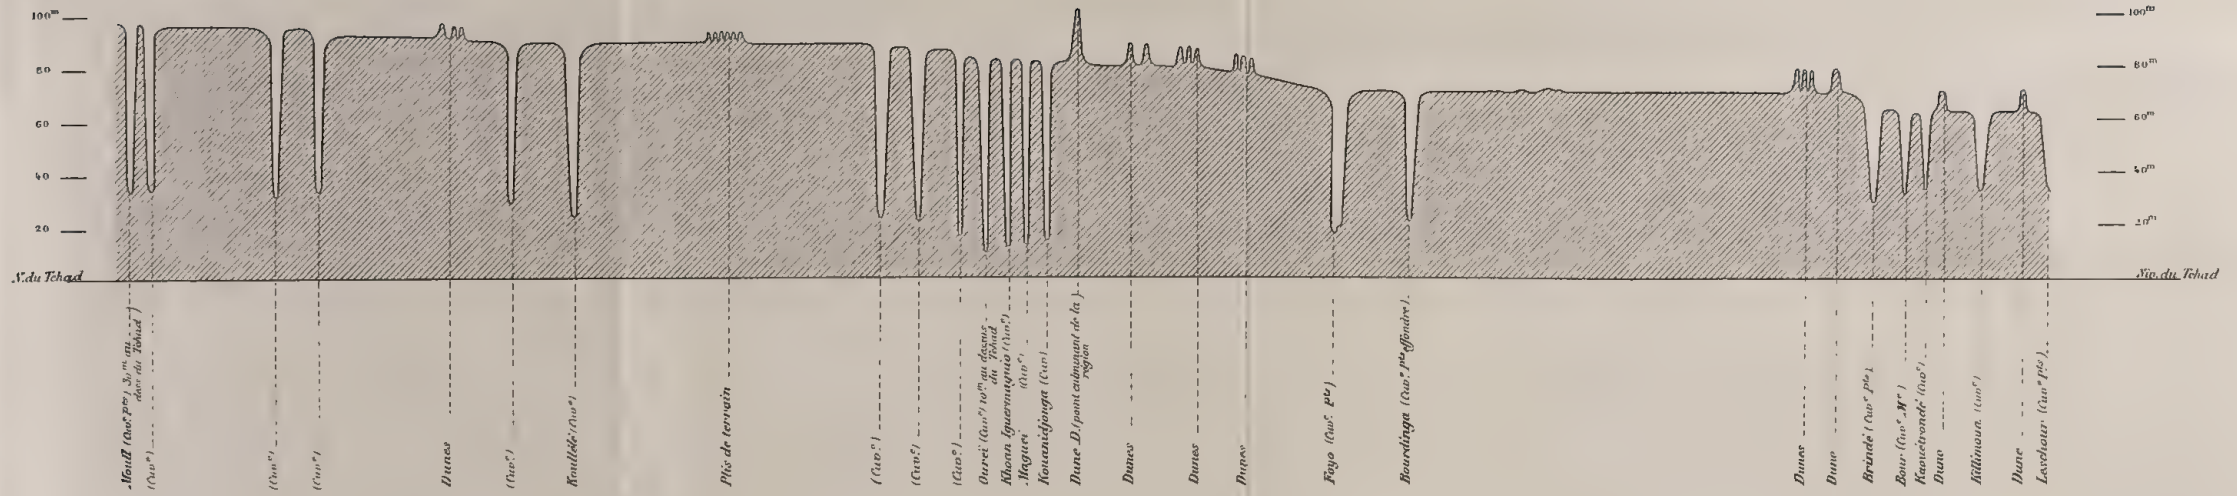 100m
80
60
40
20
N. du Tchad
100m
80m
60m
40m
20m
Niv. du Tchad
Moull (Cuve pts) 30m au
dess. du Tchad)
(Cuve)
(Cuve)
(Cuve)
Dunes
(Cuve)
Koullélé (Cuve)
Plis de terrain
(Cuve)
(Cuve)
(Cuve)
Oureï (Cuve) 10m au dessus
du Tchad
Khoan Iguermaguio (Cuve)
Maguei (Cuve)
Kouanidjonga (Cuve)
Dune D. (point culminant de la
région)
Dunes
Dunes
Dunes
Fayo (Cuve pts)
Bourdinga (Cuve pts effondré)
Dunes
Dune
Brindé (Cuve pts)
Bour (Cuve Mre)
Kaouétrondé (Cuve)
Dune
Killinoua (Cuve)
Dune
Leschour (Cuve pts)